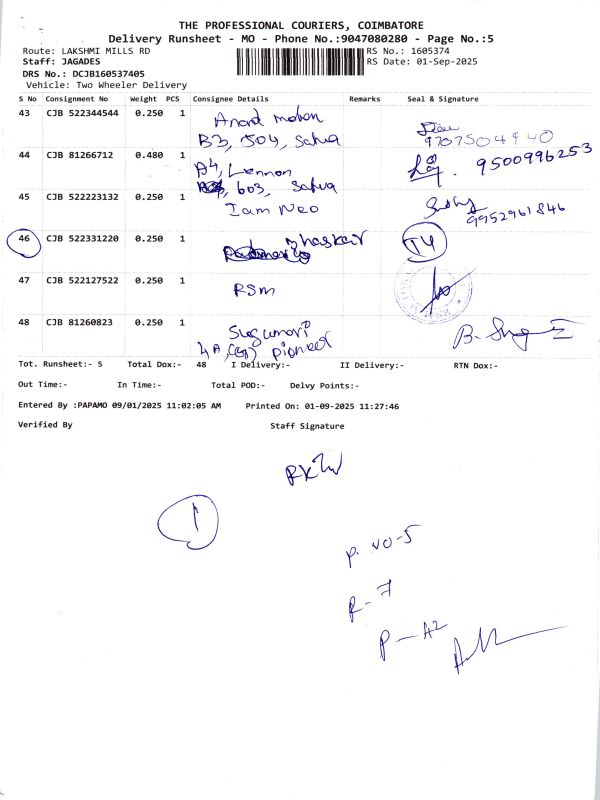 THE PROFESSIONAL COURIERS, COIMBATORE
Delivery Runsheet - MO - Phone No.:9047080280 - Page No.:5
Route: LAKSHMI MILLS RD
RS No.: 1605374
Staff: JAGADES
RS Date: 01-Sep-2025
DRS No.: DCJB160537405
Vehicle: Two Wheeler Delivery
S No Consignment No Weight PCS Consignee Details Remarks Seal & Signature
43 CJB 522344544 0.250 1 Anand mohan
B3, 504, Sahua
9707504940
44 CJB 81266712 0.480 1 A4, Lennon 9500996253
603, Sahua
45 CJB 522223132 0.250 1 Iam Neo
9952961846
46 CJB 522331220 0.250 1 bhaskar
47 CJB 522127522 0.250 1 RSM
48 CJB 81260823 0.250 1 Sugumari
4A, pioneer
Tot. Runsheet:- 5 Total Dox:- 48 I Delivery:- II Delivery:- RTN Dox:-
Out Time:- In Time:- Total POD:- Delvy Points:-
Entered By :PAPAMO 09/01/2025 11:02:05 AM Printed On: 01-09-2025 11:27:46
Verified By Staff Signature
1
P. VO-5
R-7
P-A2